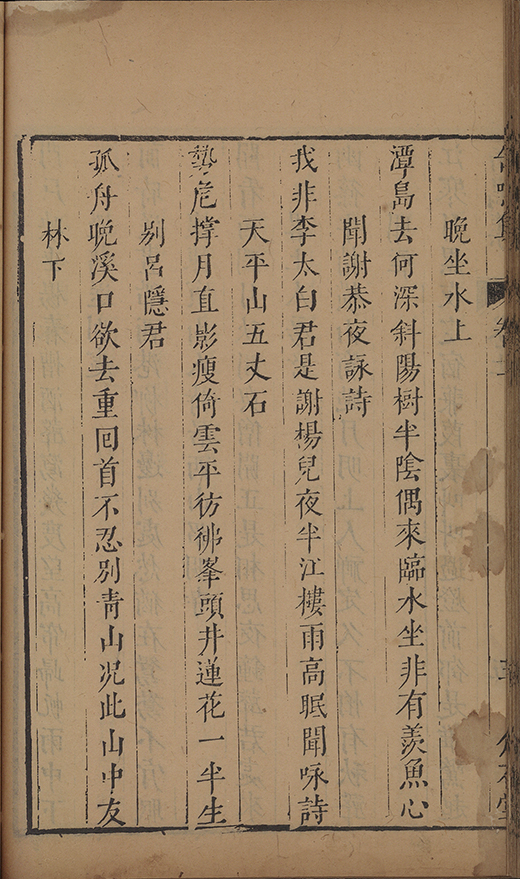 晚坐水上
潭島去何深斜陽樹半陰偶來臨水坐非有羨魚心
聞謝恭夜詠詩
我非李太白君是謝楊兒夜半江樓雨高眠聞咏詩
天平山五丈石
勢危撑月直影瘦倚雲平彷彿峯頭井蓮花一半生
别呂隱君
孤舟晚溪口欲去重回首不忍别青山况此山中友
林下